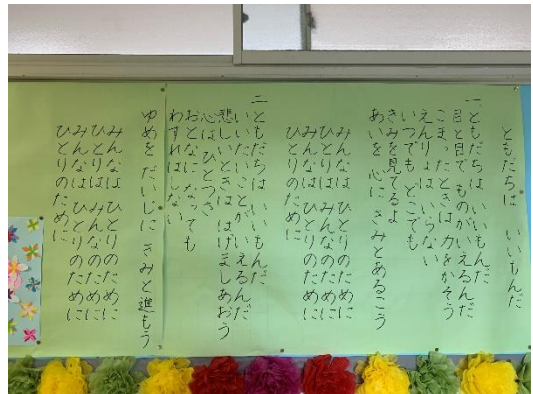 ともだちは いいもんだ
一 ともだちは いいもんだ
目と目で ものがいえるんだ
こまったときは 力をかそう
えんりょは いらない
いつでも どこでも
きみを見てるよ
あいを 心に きみとあるこう
みんなは ひとりのために
ひとりは みんなのために
みんなは ひとりのために
ひとりのために
二 ともだちは いいもんだ
いいたいことが いえるんだ
悲しいときは はげましあおう
心は ひとつさ
おとなになっても
わすれはしない
ゆめを だいじに きみと進もう
みんなは ひとりのために
ひとりは みんなのために
みんなは ひとりのために
ひとりのために